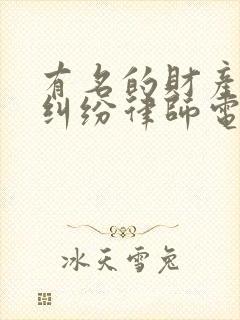 有名的財產
糾纷律師電
冰天雪兔